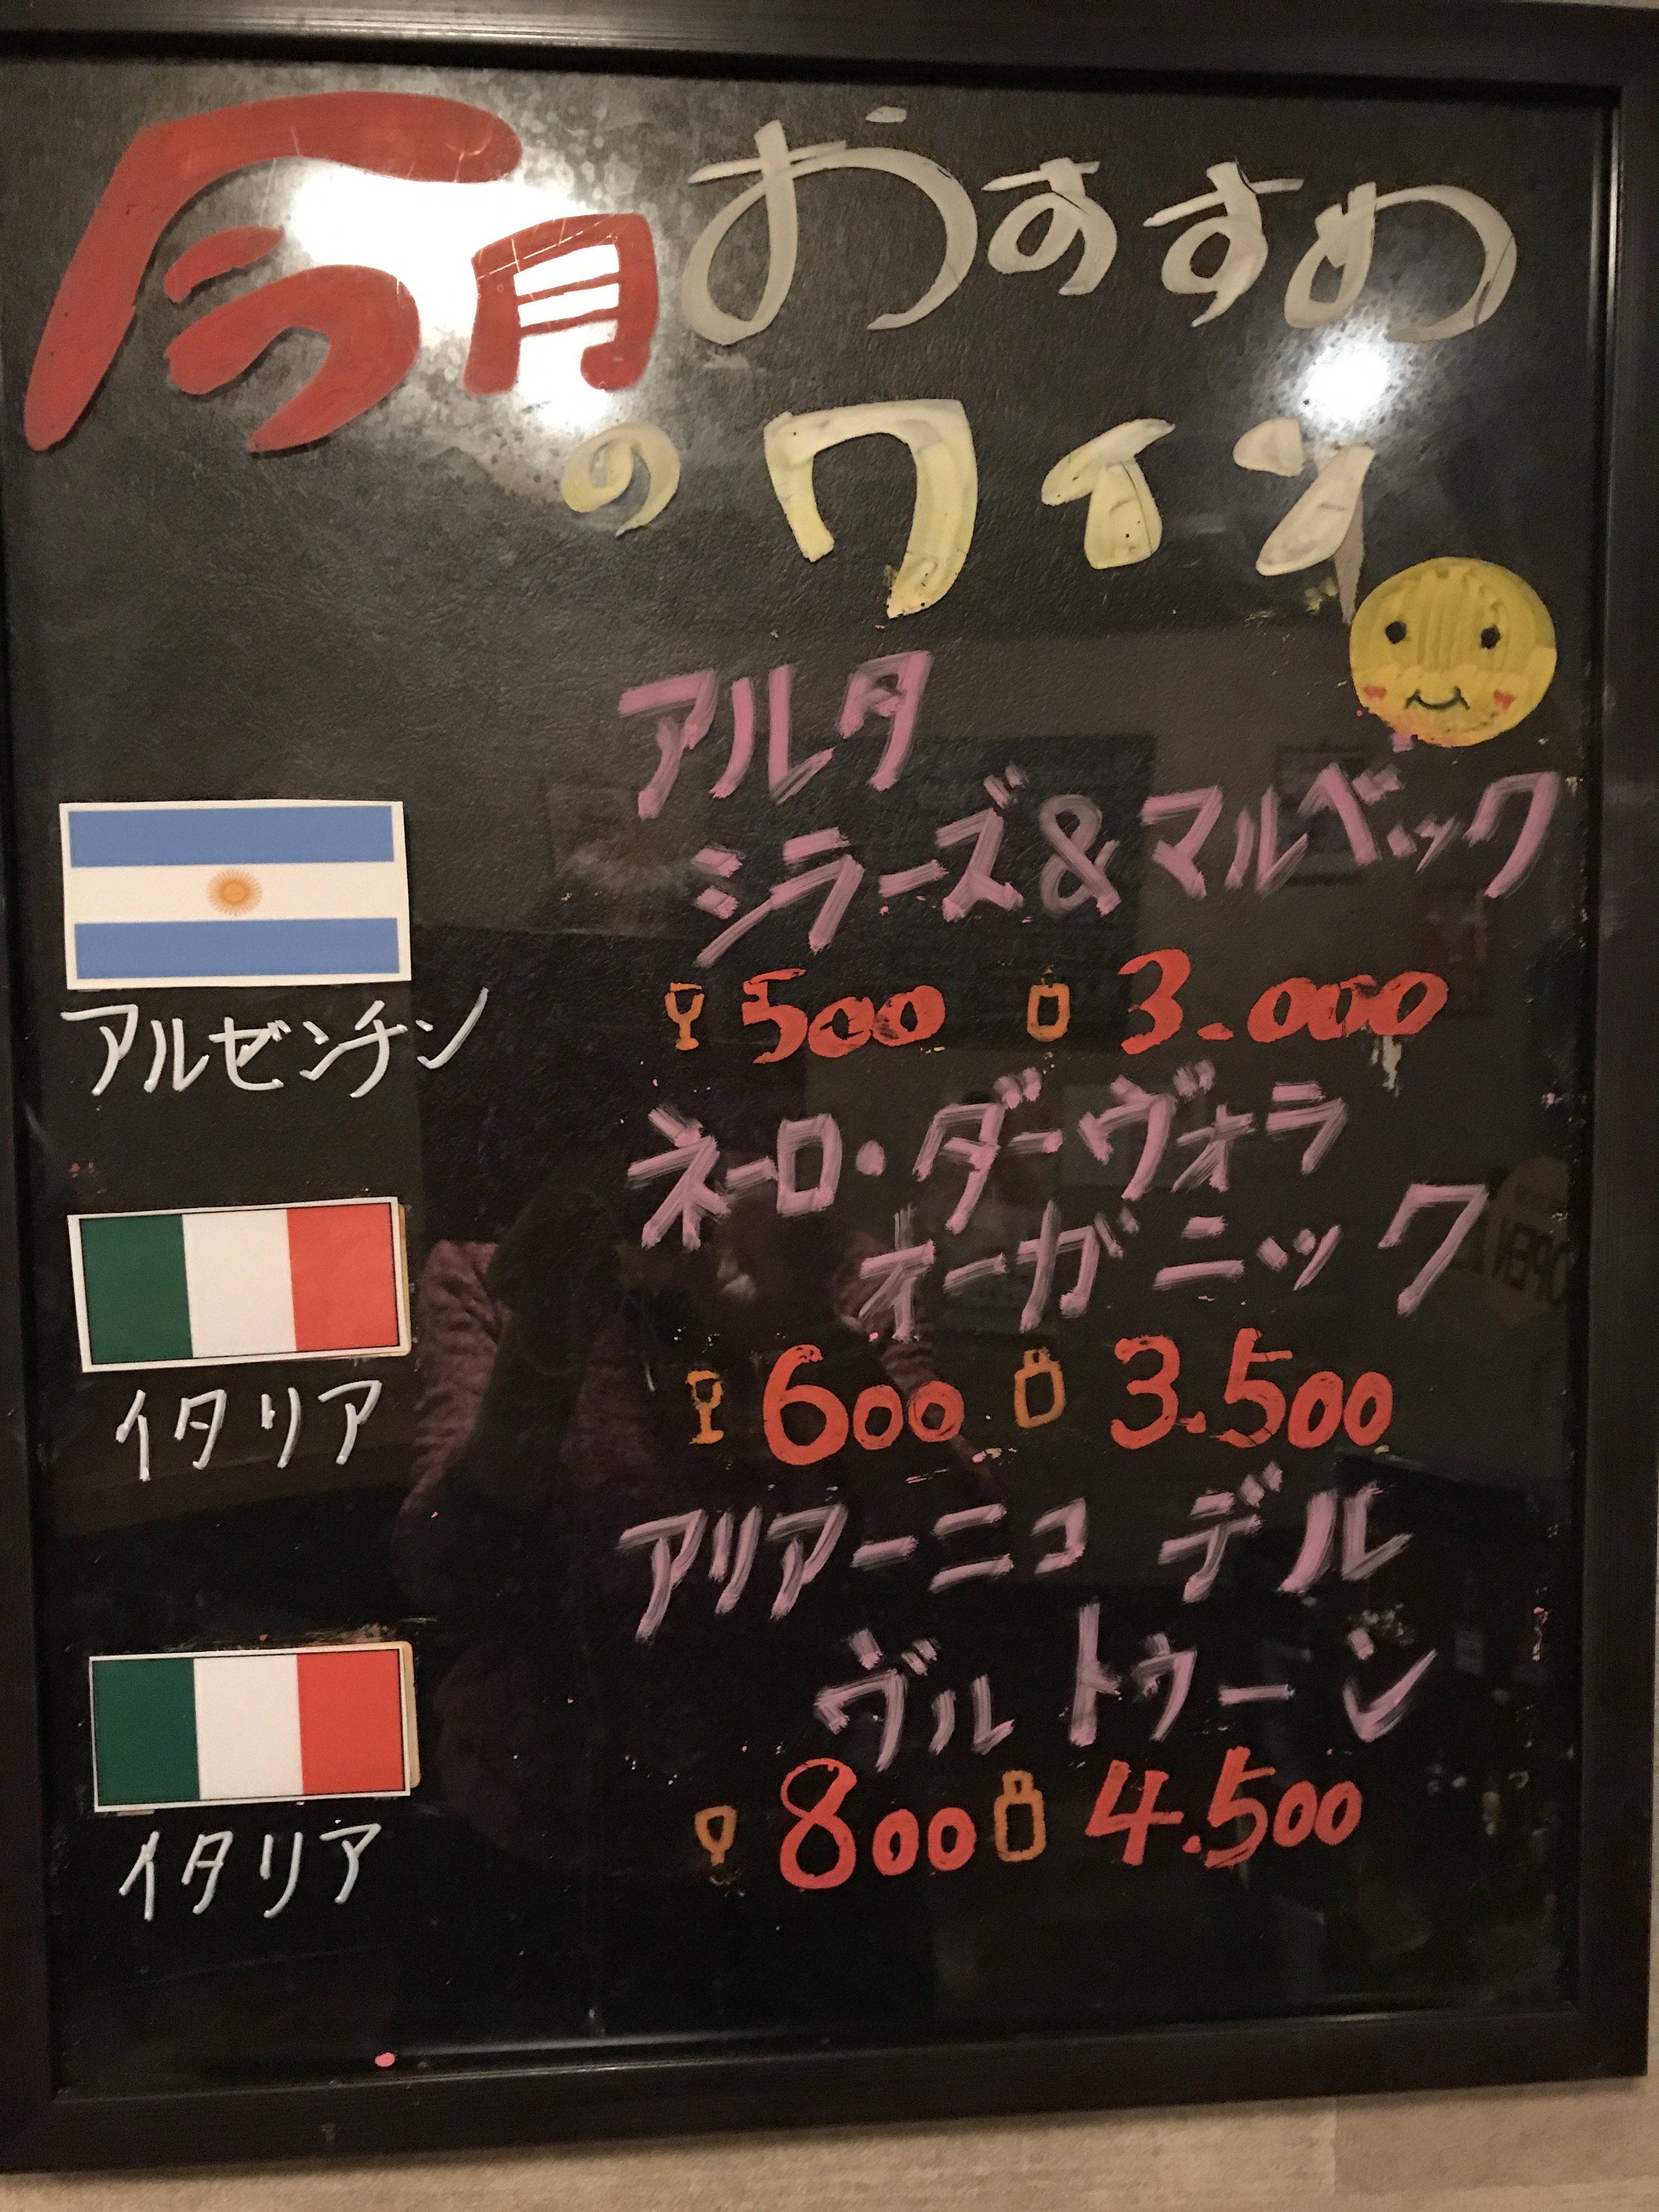 今月おすすめ
のワイン
アルタ
シラーズ&マルベック
アルゼンチン
500 3.000
ネーロ・ダーヴォラ
オーガニック
イタリア
600 3.500
アリアーニコ デル
ヴルトゥーン
イタリア
800 4.500
OPEN